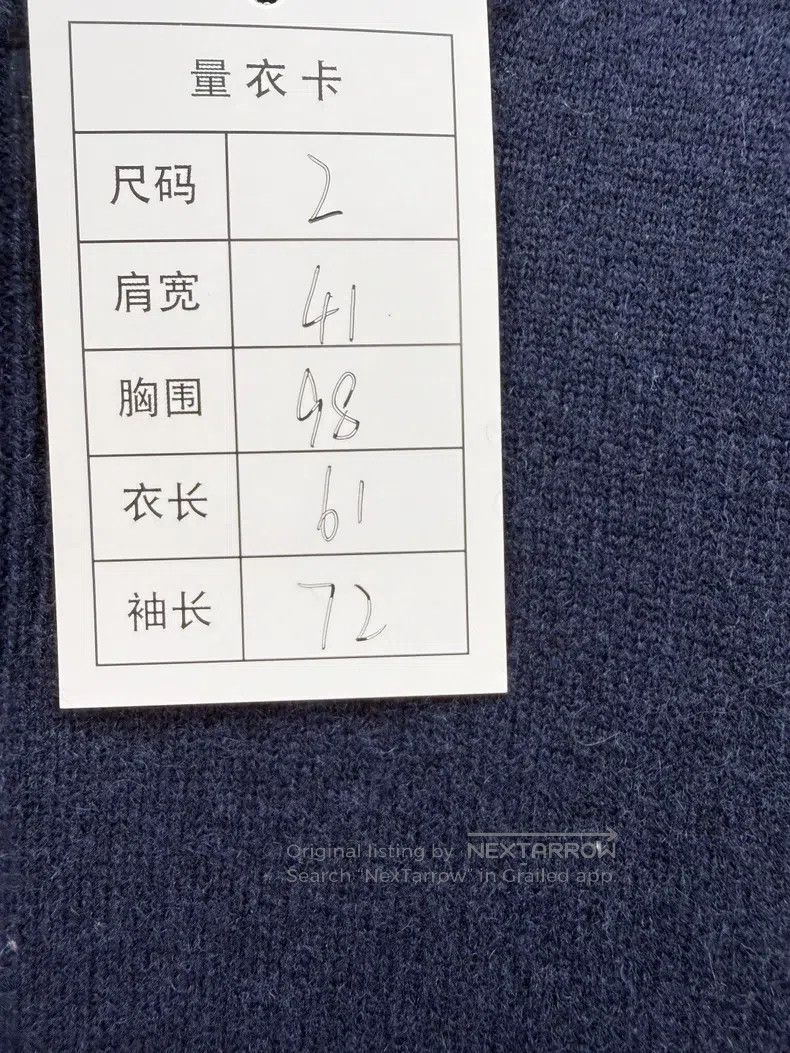 量衣卡
尺码 2
肩宽 41
胸围 98
衣长 61
袖长 72
Original listing by NEXTARROW
Search 'NexTarrow' in Grailed app